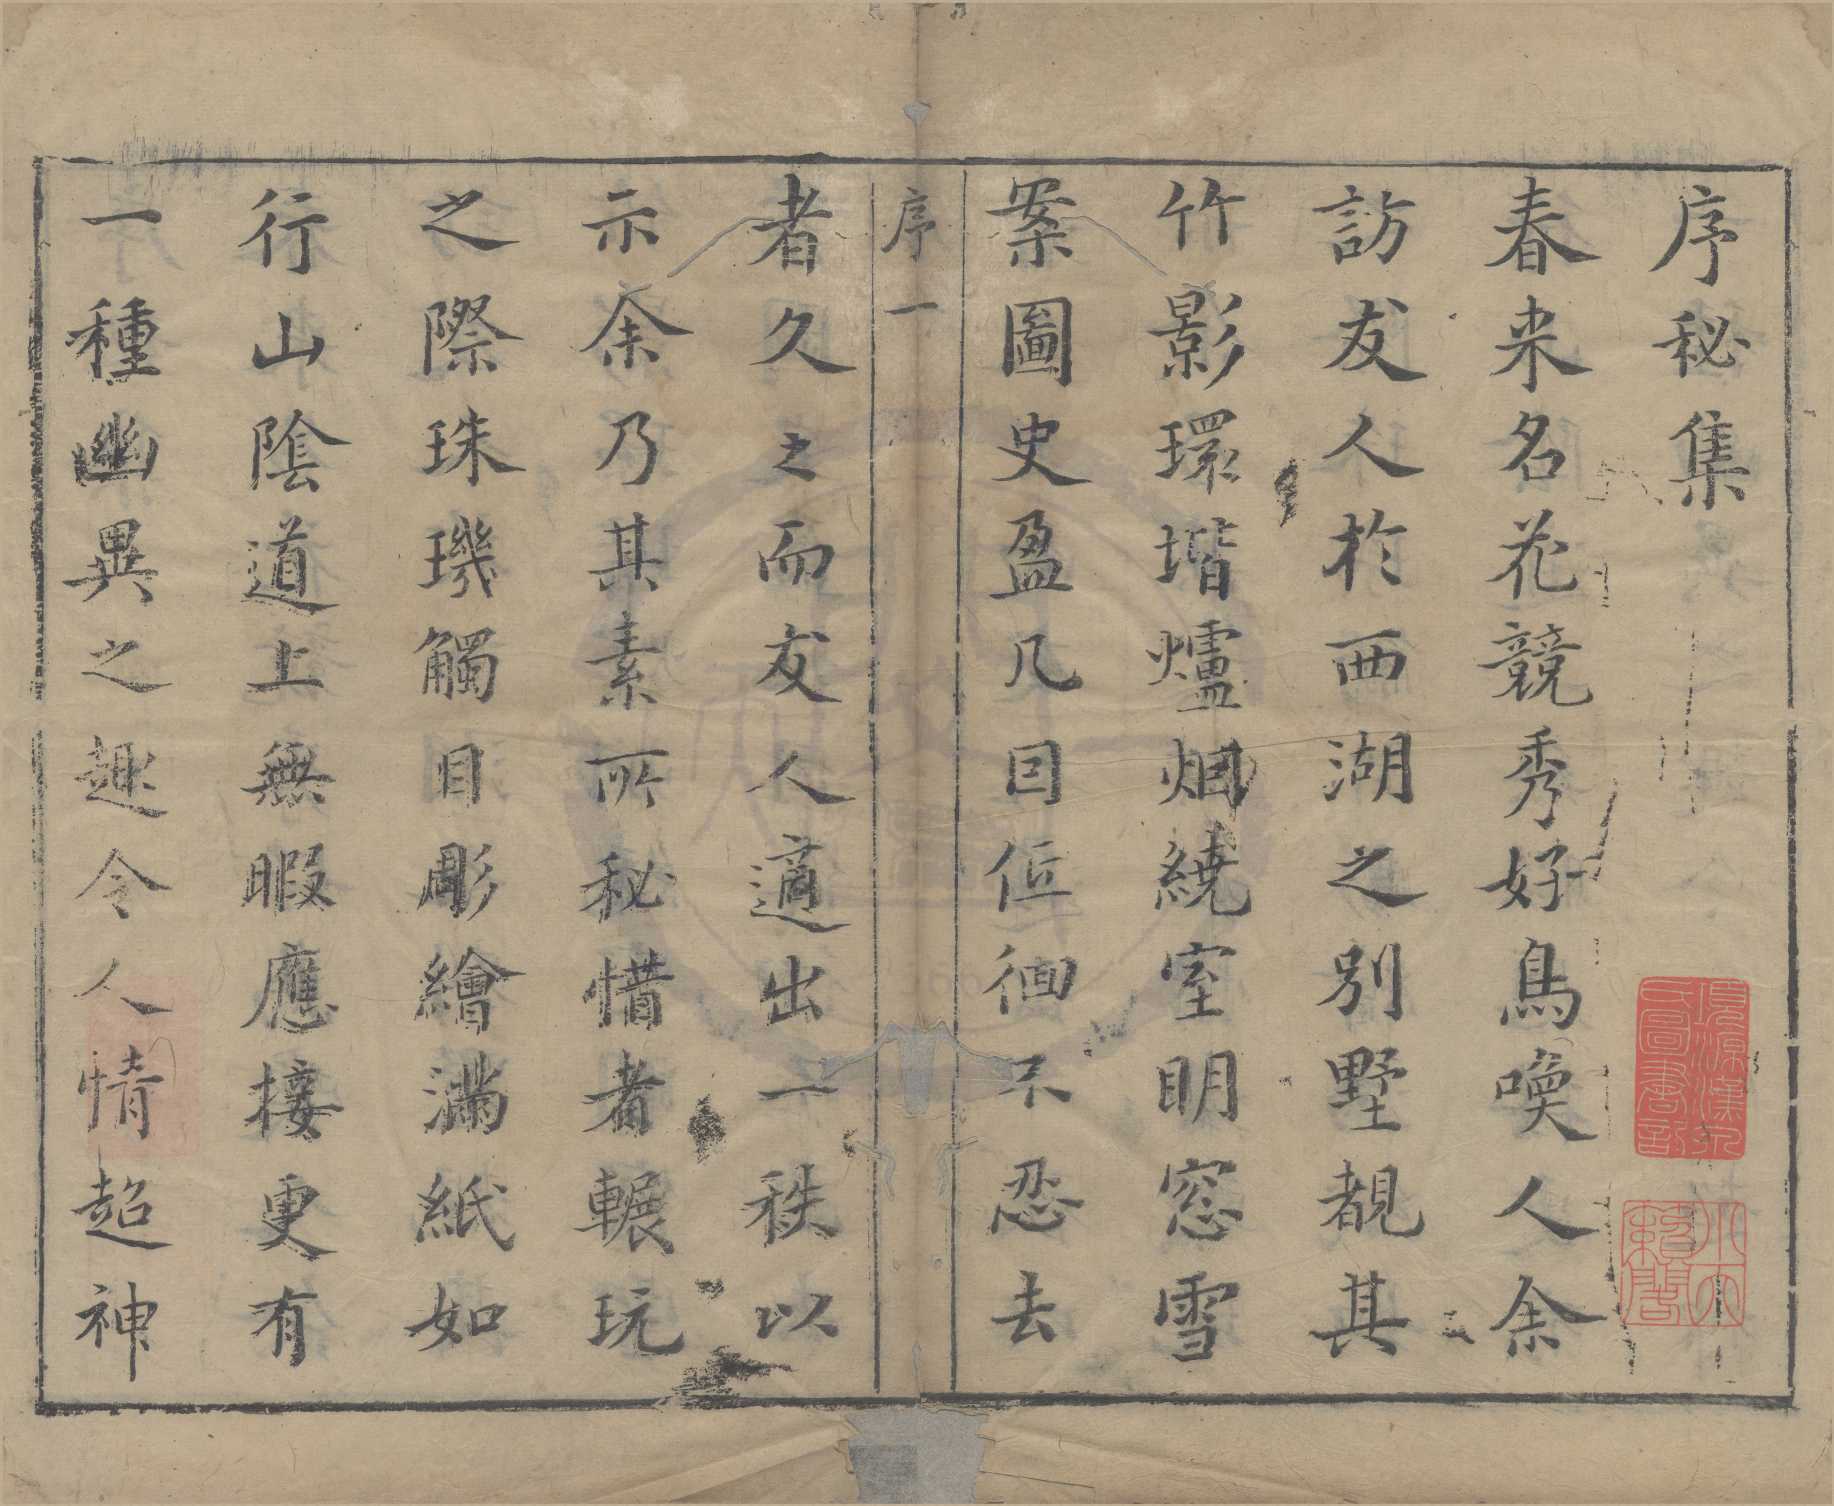 序秘集
春来名花競秀好鳥喚人余
訪友人於西湖之別墅覩其
竹影環堦爐烟繞室明窓雪
案圖史盈几目低徊不忍去
序一
者久之而友人適出一秩以
示余乃其素所秘惜者輾玩
之際珠璣觸目彫繪滿紙如
行山陰道上無暇應接更有
一種幽異之趣令人情超神